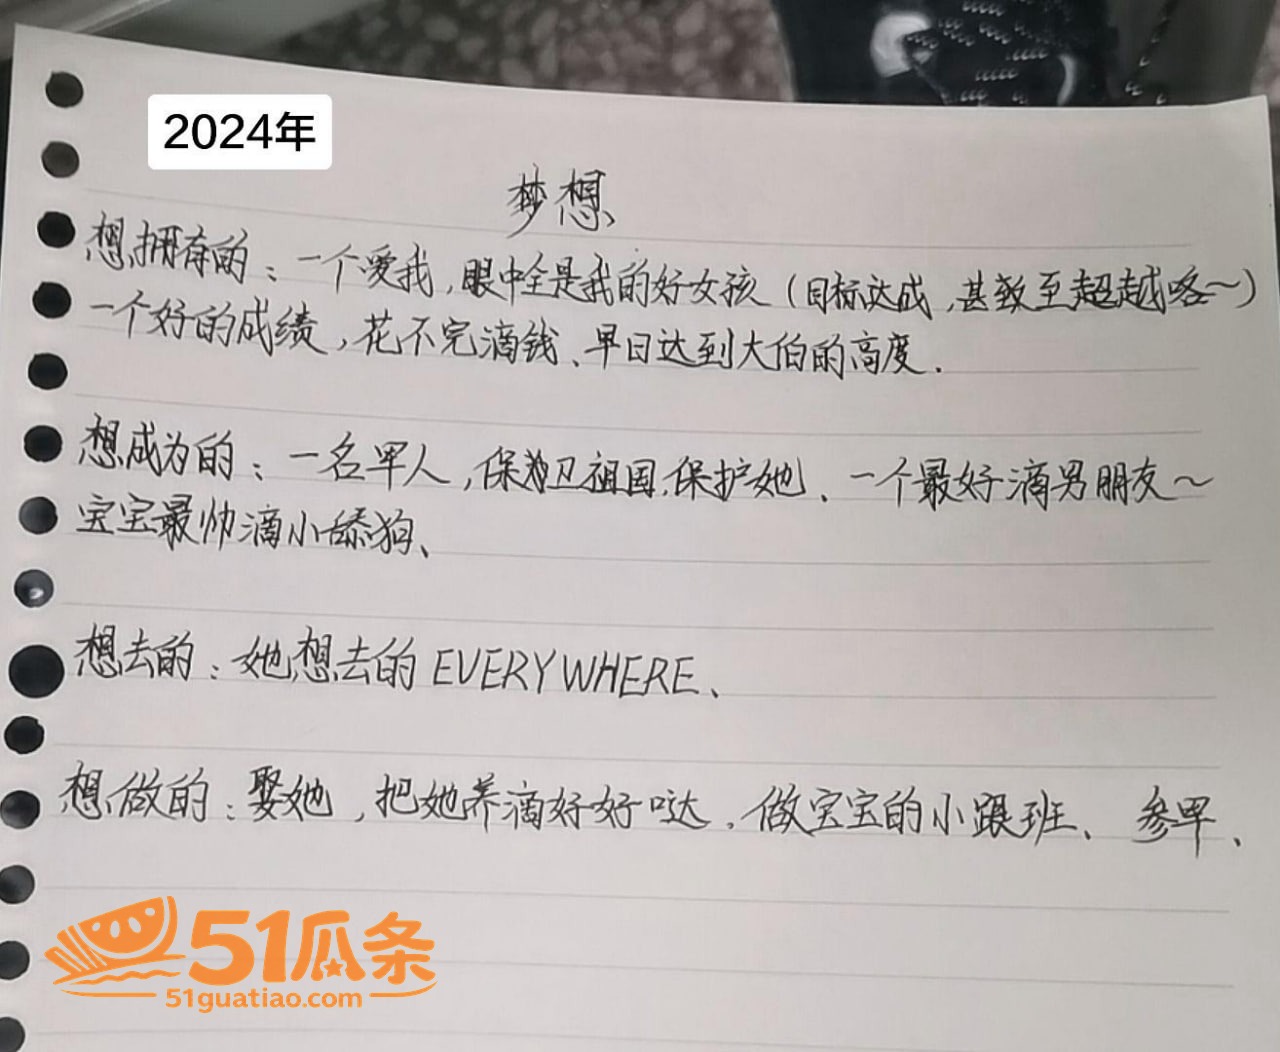 2024年
梦想
想拥有的：一个爱我，眼中全是我的好女孩（目标达成，甚致至超越咯～）
一个好的成绩，花不完滴钱、早日达到大伯的高度.
想成为的：一名军人，保卫祖国,保护她、一个最好滴男朋友～
宝宝最帅滴小舔狗、
想去的：她想去的 EVERYWHERE、
想做的：娶她，把她养滴好好哒．做宝宝的小跟班、参军、
51瓜条
51guatiao.com